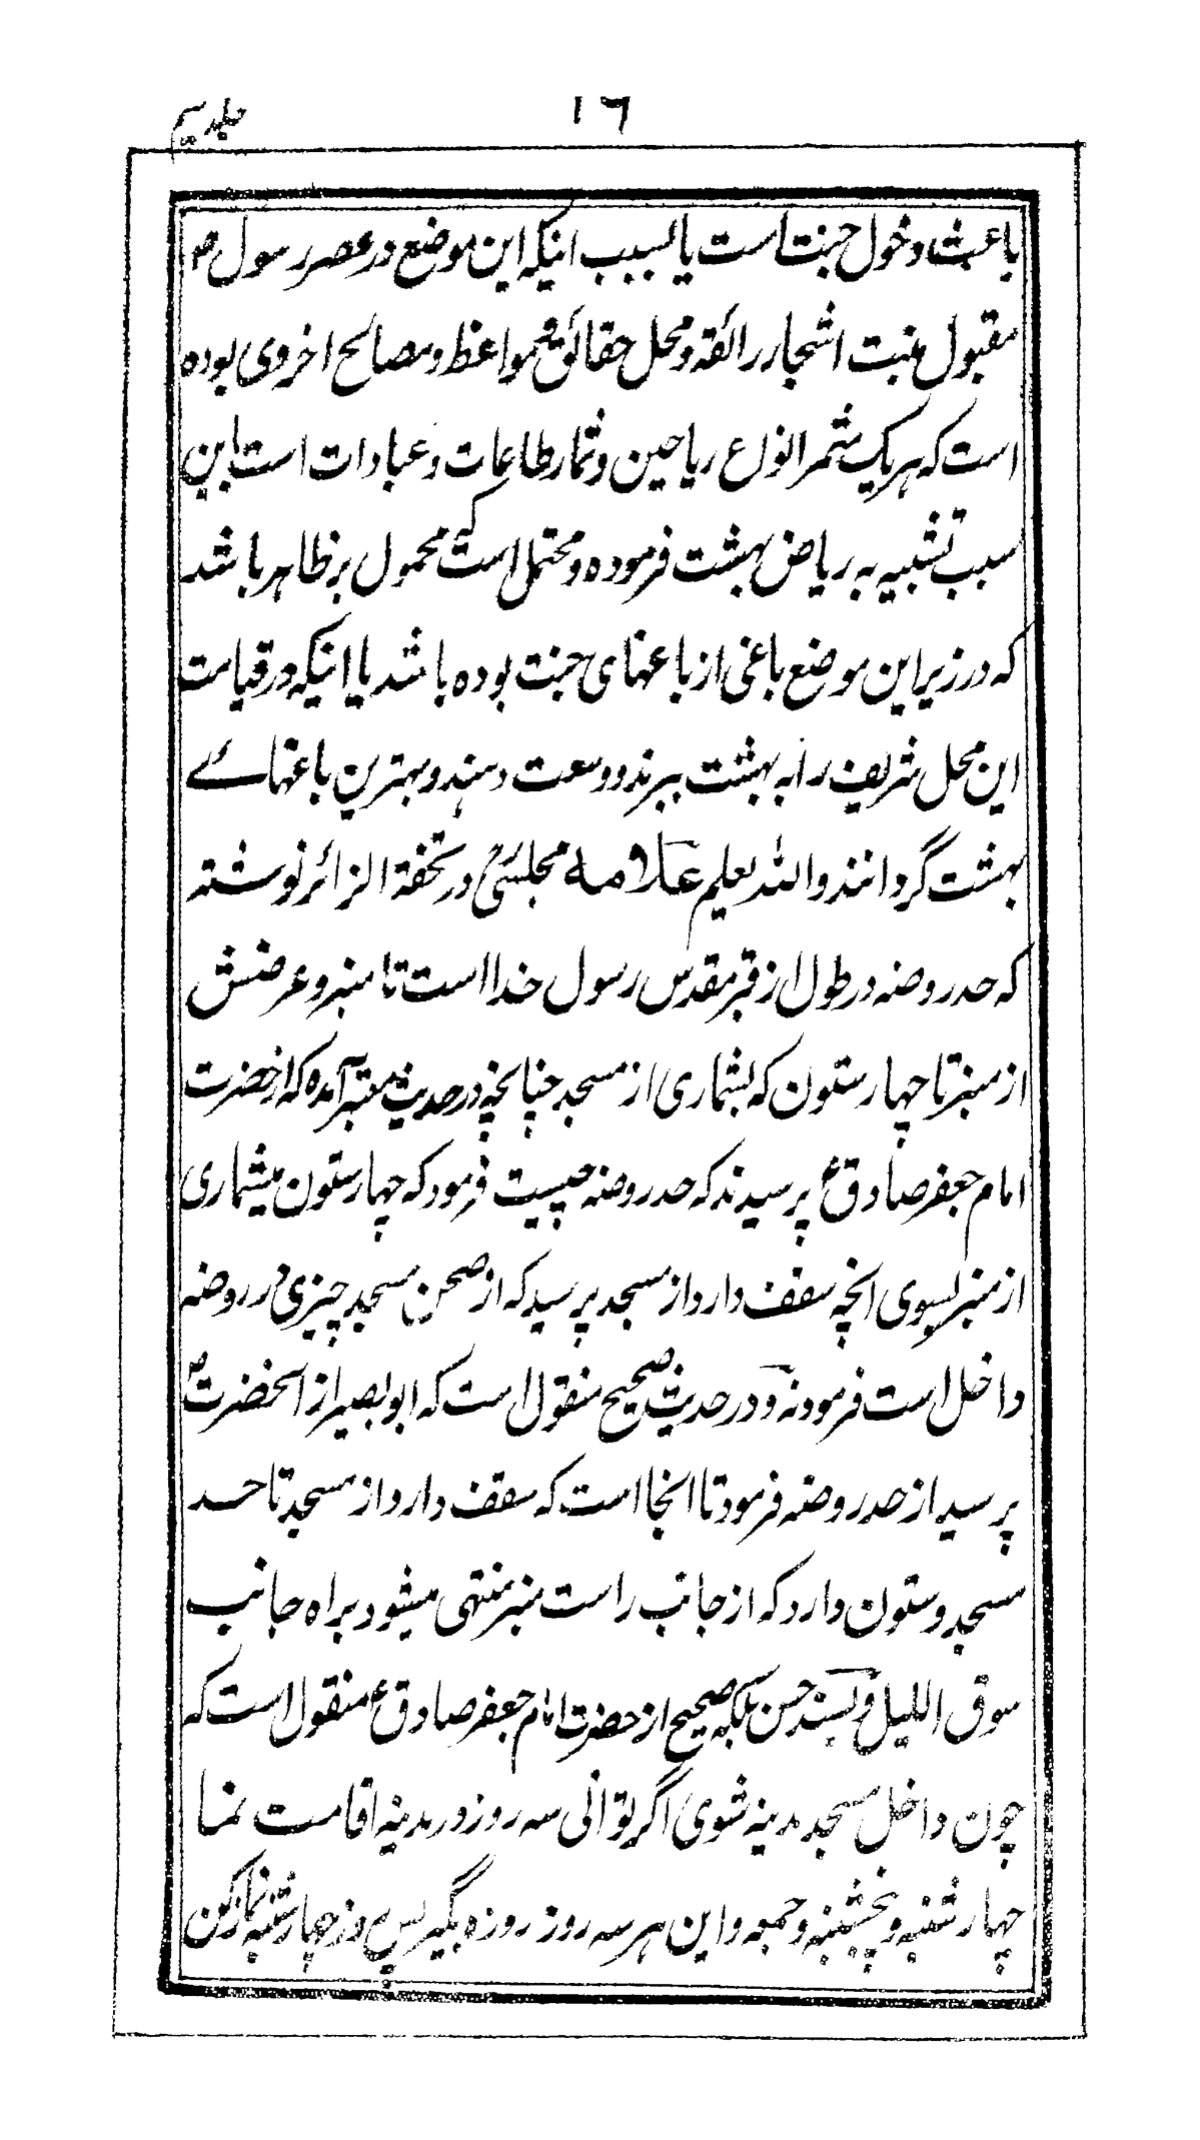 ۱۶
جلد سیم
باعث دخول جنت است یا بسبب اینکه این موضع در عصر رسول ص
مقبول منبت اشجار رائقه و محل حقائق مواعظ و مصالح اخروی بوده
است که هریک مثمر انواع ریاحین و ثمار طاعات و عبادات است باین
سبب تشبیه به ریاض بهشت فرموده و محتمل است که محمول بر ظاهر باشد
که در زیر این موضع باغی از باغهای جنت بوده باشد یا اینکه در قیامت
این محل شریف را به بهشت ببرند و وسعت دهند و بهترین باغهائے
بهشت گردانند والله یعلم علامه مجلسیؒ در تحفة الزائر نوشته
که حد روضه در طول از قبر مقدس رسول خدا است تا منبر و عرضش
از منبر تا چهار ستون که بشماری از مسجد چنانچه در حدیث معتبر آمده که از حضرت
امام جعفر صادق ع پرسیدند که حد روضه چیست فرمود که چهار ستون میشماری
از منبر بسوی انچه سقف دارد از مسجد پرسید که از صحن مسجد چیزی در روضه
داخل است فرمود نه و در حدیث صحیح منقول است که ابو بصیر از انحضرت ع
پرسید از حد روضه فرمود تا انجا است که سقف دارد از مسجد تا حد
مسجد و ستون دارد که از جانب راست منبر منتهی میشود براه جانب
سوق اللیل و بسند حسن بلکه صحیح از حضرت امام جعفر صادق ع منقول است که
چون داخل مسجد مدینه شوی اگر توانی سه روز در مدینه اقامت نما
چهارشنبه و پنجشنبه و جمعه و این هر سه روز روزه بگیر پس روز چهارشنبه نماز کن